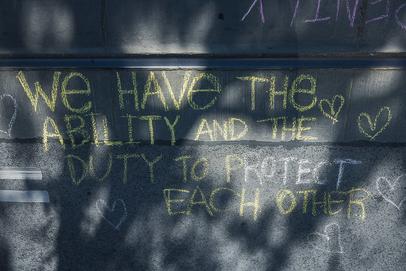 We HAVe THe
ABILITY AND THE
DUTY TO PROTECT
EACH OTHER